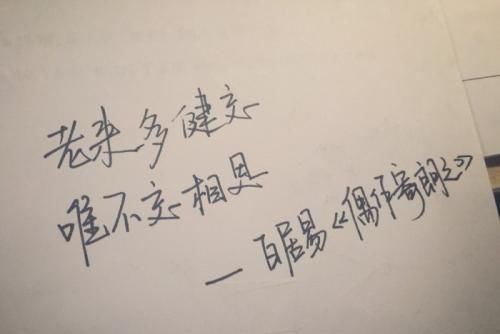 老来多健忘
唯不忘相思
—白居易《偶作寄朗之》